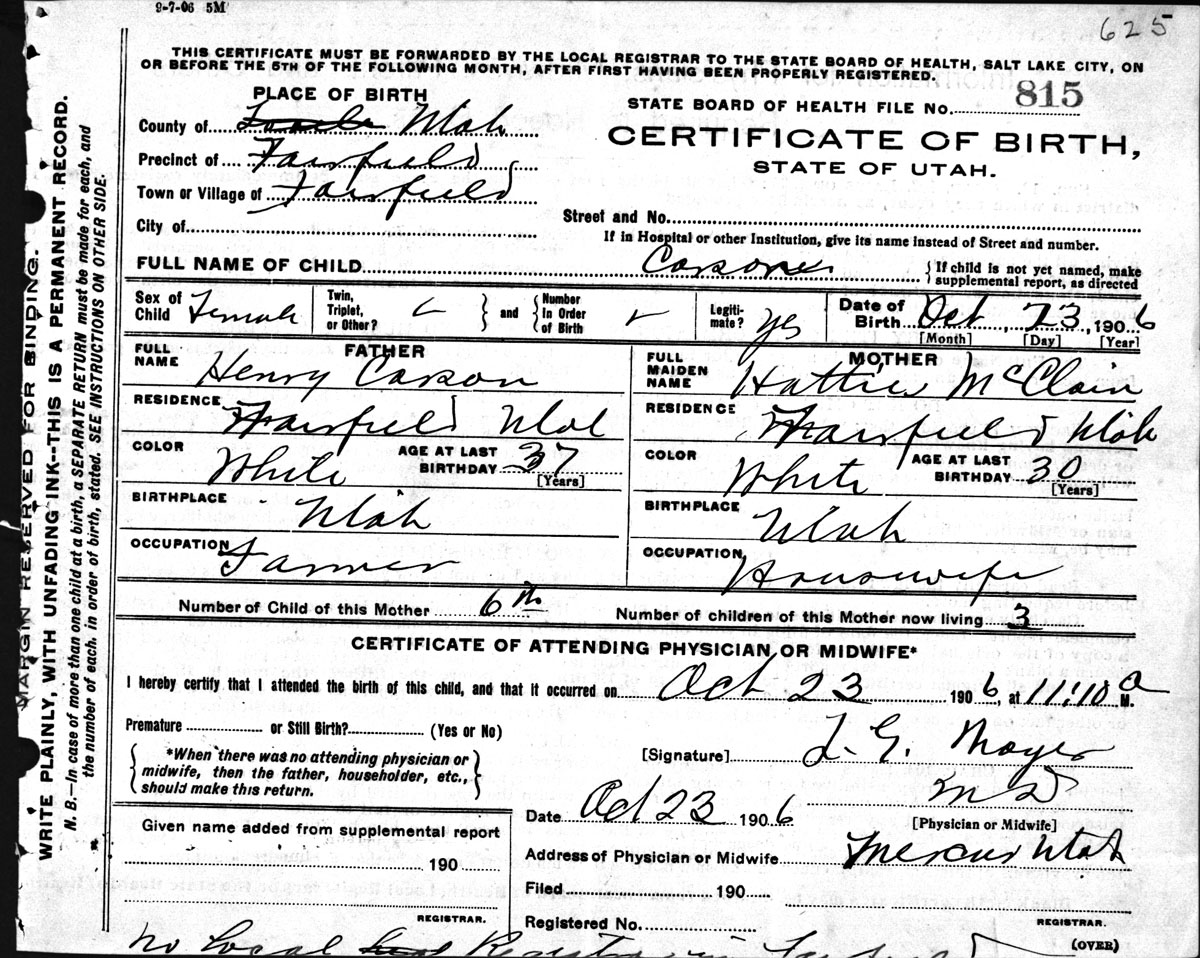 9-7-06 5M
625
THIS CERTIFICATE MUST BE FORWARDED BY THE LOCAL REGISTRAR TO THE STATE BOARD OF HEALTH, SALT LAKE CITY, ON
OR BEFORE THE 5TH OF THE FOLLOWING MONTH, AFTER FIRST HAVING BEEN PROPERLY REGISTERED.
PLACE OF BIRTH
STATE BOARD OF HEALTH FILE No. 815
County of Utah
CERTIFICATE OF BIRTH,
Precinct of Fairfield
STATE OF UTAH.
Town or Village of Fairfield
Street and No.
City of
If in Hospital or other Institution, give its name instead of Street and number.
FULL NAME OF CHILD { If child is not yet named, make
supplemental report, as directed
Sex of Child Female
Twin, Triplet, or Other? } and { Number In Order of Birth
Legiti-mate? yes
Date of Birth Oct 23, 1906
[Month] [Day] [Year]
FATHER
FULL NAME Henry Carson
MOTHER
FULL MAIDEN NAME Hattie McClain
RESIDENCE Fairfield Utah
RESIDENCE Fairfield Utah
COLOR White AGE AT LAST BIRTHDAY 37 [Years]
COLOR White AGE AT LAST BIRTHDAY 30 [Years]
BIRTHPLACE Utah
BIRTHPLACE Utah
OCCUPATION Farmer
OCCUPATION Housewife
Number of Child of this Mother 6th Number of children of this Mother now living 3
CERTIFICATE OF ATTENDING PHYSICIAN OR MIDWIFE*
I hereby certify that I attended the birth of this child, and that it occurred on Oct 23 1906, at 11:10 a M.
Premature or Still Birth? (Yes or No)
{ *When there was no attending physician or
midwife, then the father, householder, etc.,
should make this return. }
[Signature] L. G. Moyer
M D
[Physician or Midwife]
Date Oct 23 1906
Address of Physician or Midwife Mercur Utah
Given name added from supplemental report
190
REGISTRAR.
Filed 190
Registered No.
REGISTRAR.
(OVER)
No Local Registrar in Fairfield
MARGIN RESERVED FOR BINDING.
WRITE PLAINLY, WITH UNFADING INK--THIS IS A PERMANENT RECORD.
N. B.—In case of more than one child at a birth, a SEPARATE RETURN must be made for each, and
the number of each, in order of birth, stated. SEE INSTRUCTIONS ON OTHER SIDE.